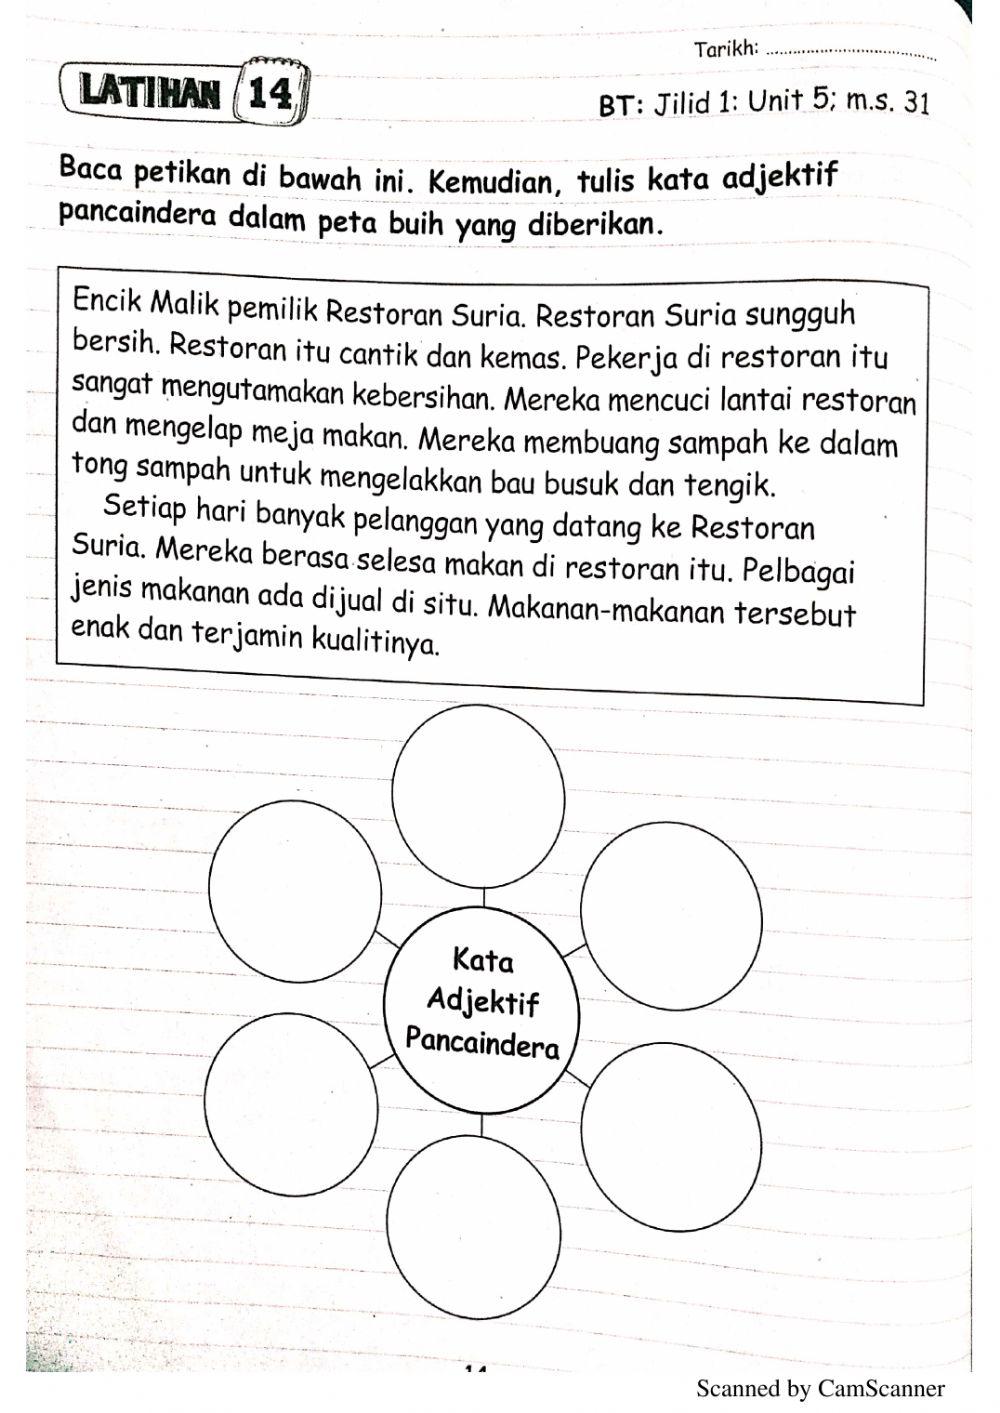 Tarikh: ....................................
LATIHAN 14
BT: Jilid 1: Unit 5; m.s. 31
Baca petikan di bawah ini. Kemudian, tulis kata adjektif
pancaindera dalam peta buih yang diberikan.
Encik Malik pemilik Restoran Suria. Restoran Suria sungguh
bersih. Restoran itu cantik dan kemas. Pekerja di restoran itu
sangat mengutamakan kebersihan. Mereka mencuci lantai restoran
dan mengelap meja makan. Mereka membuang sampah ke dalam
tong sampah untuk mengelakkan bau busuk dan tengik.
Setiap hari banyak pelanggan yang datang ke Restoran
Suria. Mereka berasa selesa makan di restoran itu. Pelbagai
jenis makanan ada dijual di situ. Makanan-makanan tersebut
enak dan terjamin kualitinya.
Kata
Adjektif
Pancaindera
Scanned by CamScanner